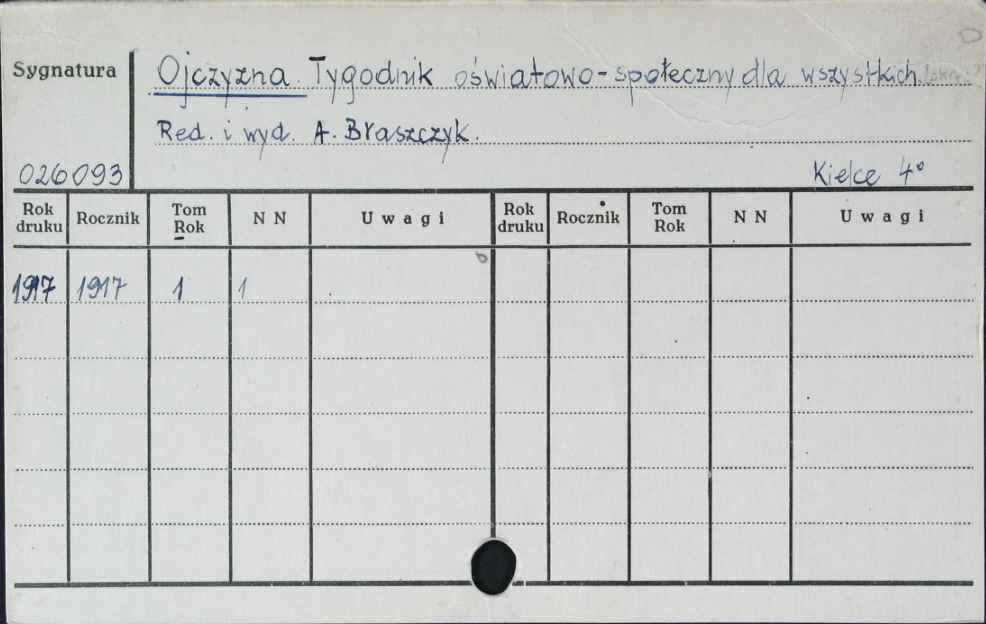 Sygnatura
Ojczyzna. Tygodnik oświatowo-społeczny dla wszystkich.
Red. i wyd. A. Błaszczyk.
026093
Kielce 4°
Rok druku Rocznik Tom Rok N N Uwagi Rok druku Rocznik Tom Rok N N Uwagi
1917 1917 1 1